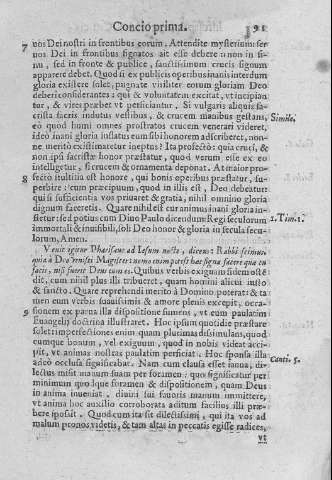 Concio prima. 91
7 nos Dei nostri in frontibus eorum. Attendite mysterium: ser
nos Dei in frontibus signatos ait esse debere: non in si-
nu, sed in fronte & publice, sanctissimum crucis signum
apparere debet. Quod si ex publicis operibus inanis interdum
gloria existere solet, pugnate viriliter eorum gloriam Deo
deberi considerantes: qui & voluntatem excitat, vt incipian
tur, & vires præbet vt perficiantur. Si vulgaris aliquis sa-
crista sacris indutus vestibus, & crucem manibus gestans, Simile.
eò quod humi omnes prostratos crucem venerari videret,
ideo inani gloria inflatus eum sibi honorem adscriberet, non-
ne meritò existimaretur ineptus? Ita profectò: quia cruci, &
non ipsi sacristæ honor præstatur, quod verum esse ex eo
intelligetur, si crucem & ornamenta deponat. At maior pro-
8 fectò stultitia est homini, qui bonis operibus præstatur, su-
perbire: cum præcipuum, quod in illis est, Deo debeatur:
qui si sufficientia vos priuaret & gratia, nihil omnino gloria
dignum faceretis. Quare nihil est cur animus inani gloria in-
fletur: sed potius cum Diuo Paulo dicendum: Regi seculorum 1. Tim. 1.
immortali & inuisibili, soli Deo honor & gloria in secula secu-
lorum, Amen.
Venit igitur Pharisæus ad Iesum nocte, dicens: Rabbi scimus
quia à Deo venisti Magister: nemo enim potest hæc signa facere quæ tu
facis, nisi fuerit Deus cum eo. Quibus verbis exiguum fidem ostē
dit, cum nihil plus illi tribueret, quam homini alicui iusto
& sancto. Quare reprehendi meritò à Domino poterat: & ta
men eum verbis suauissimis & amore plenis excepit, occa-
9 sionem ex parua illa dispositione sumens, vt eum paulatim
Euangelij doctrina illustraret. Hoc ipsum quotidie præstare
solet: imperfectiones enim quam plurimas dissimulans, quod-
cumque bonum, vel exiguum, quod in nobis videat acci-
pit, vt animas nostras paulatim perficiat. Hoc sponsa illa
adeò occlusa significabat. Nam cum clausa esset ianua, di- Canti. 5.
lectus misit manum suam per foramen: quo significatur per
minimum quodque foramen & dispositionem, quam Deus
in anima inueniat, diuini sui fauoris manum immittere,
vt anima hoc auxilio corroborata aditum facilius illi præ-
bere possit. Quod cum ita sit dilectissimi, qui ita vos ad
malum pronos videtis, & tam altas in peccatis egisse radices,
vt